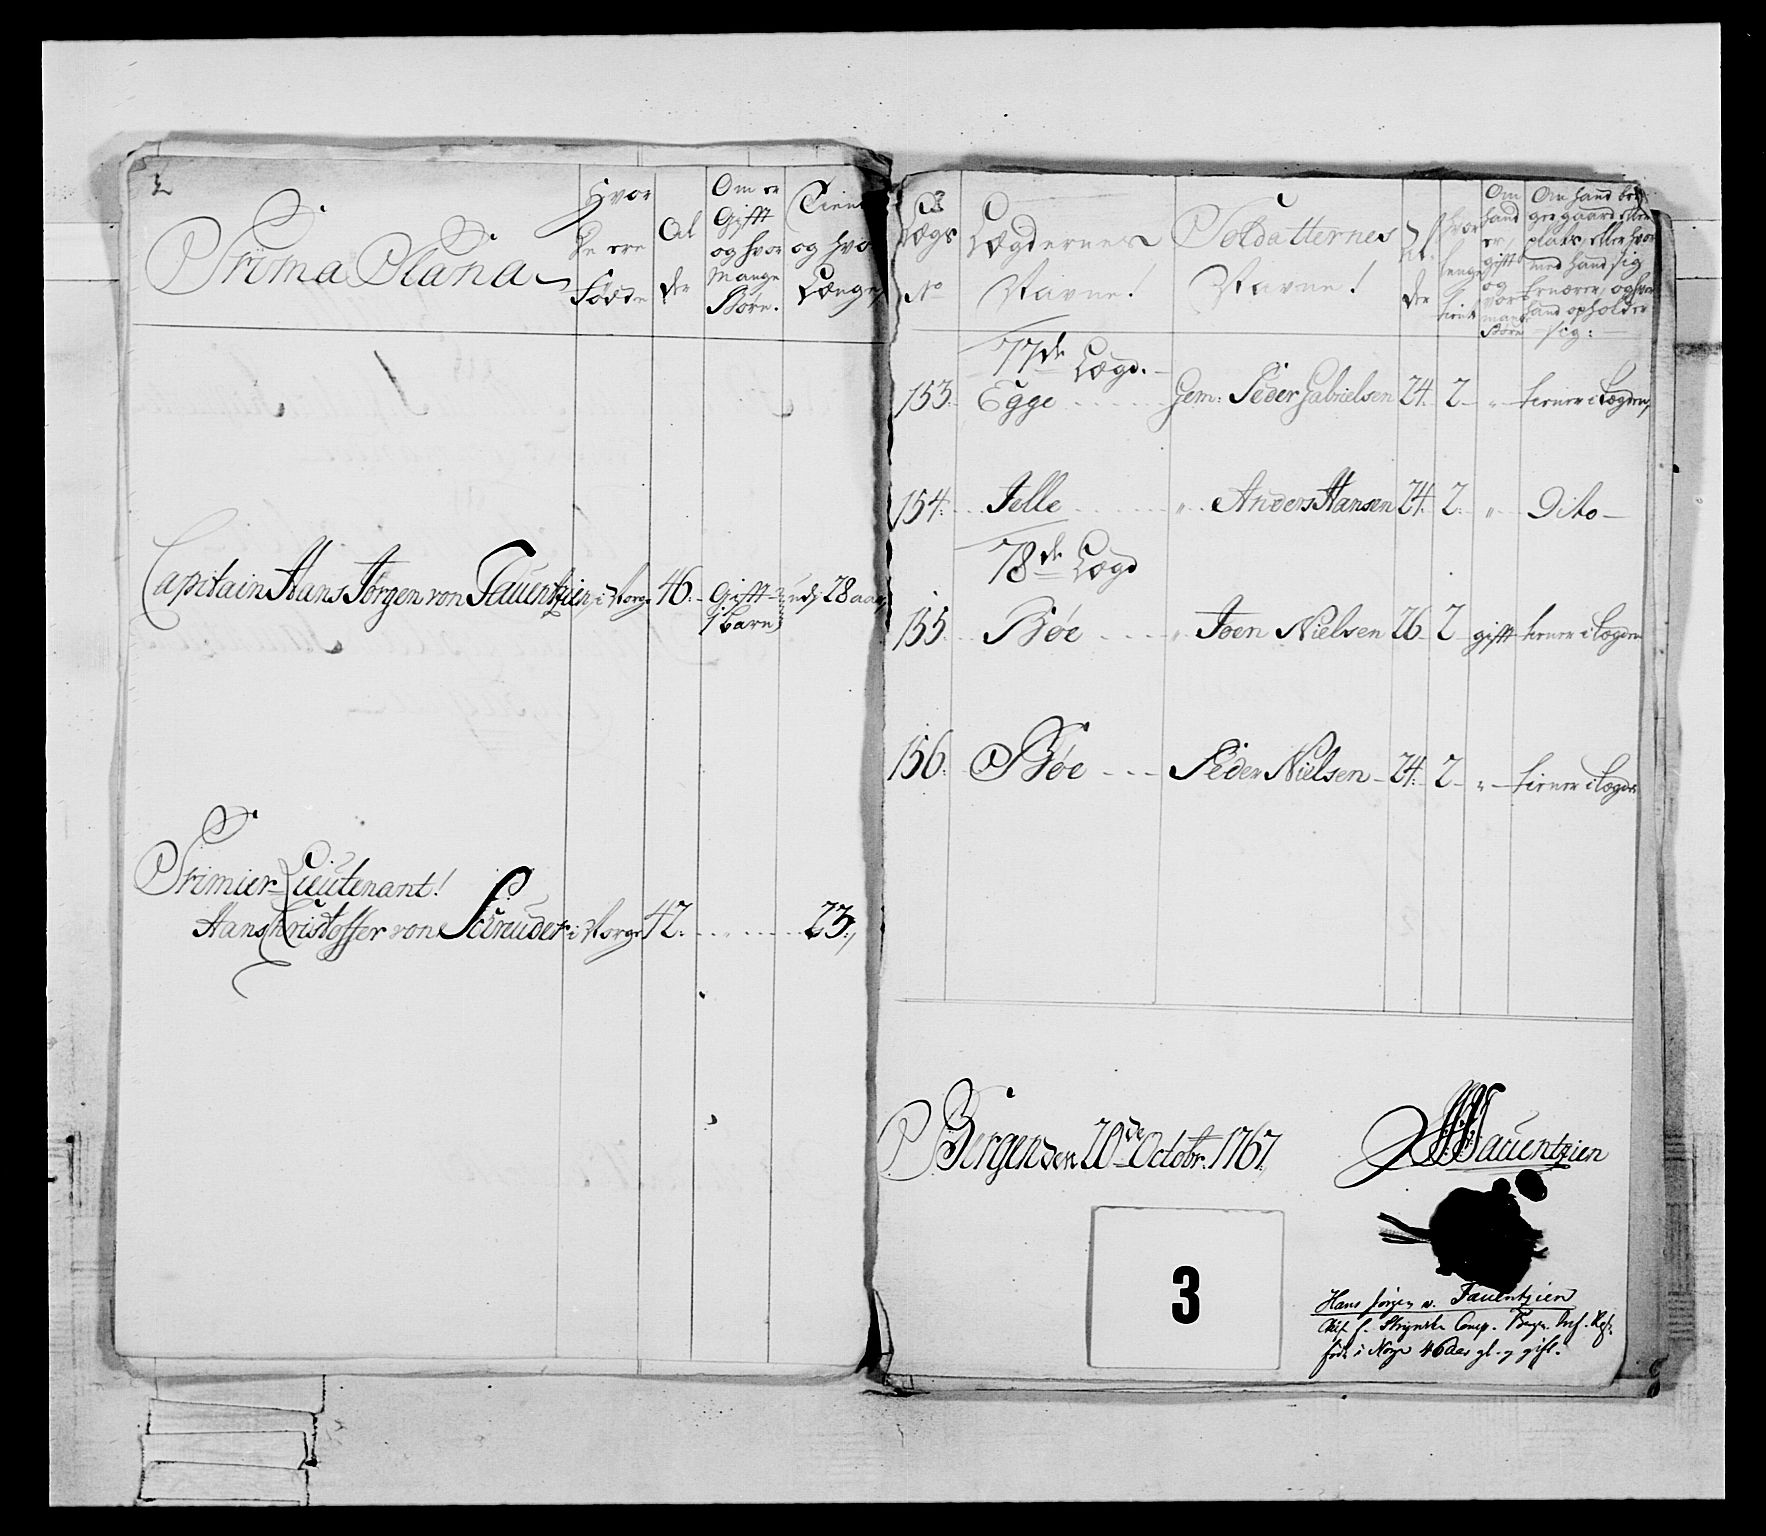 2
Prima Plana
Hvor
De ere
Födde
Al
der
Om er
Gifft
og hvor
Mange
Börn.
Tient
og hvor
Længe
Capitain Hans Jørgen von Tauentzien, i Norge 46. Gifft 28 aar,
1 barn
Primier-Lieutenant!
Hans Christoffer von Schreuder i Norge 42. „ 23.,
3
Lægs
No
Lægdernes
Navne!
Soldatternes
Navne!
Al
der
hvor
lenge
tient
Om
hand
er
gifft
og
hvor
mange
Børn
Om hand bru
ger gaard eller
plads, eller hvor
med hand sig
ernærer, og hvor
hand opholder
sig:
77de Lægd.
153. Egge Gem: Peder Gabrielsen 24. 2 „ tiener i Lægden,
154. Jelle „ Anders Hansen 24. 2. „ Dito
78de Lægd
155. Bøe „ Joen Nielsen 26 2 gifft tiener i Lægden
156. Bøe Peder Nielsen 24. 2 „ tiener i Lægden
Bergen den 20de Octobr. 1767.
Tauentzien
3
Hans Jørgen v. Tauentzien
Comp. Berg. Inf. Rgt.
født i Norge 46 Aar gl. og gift.